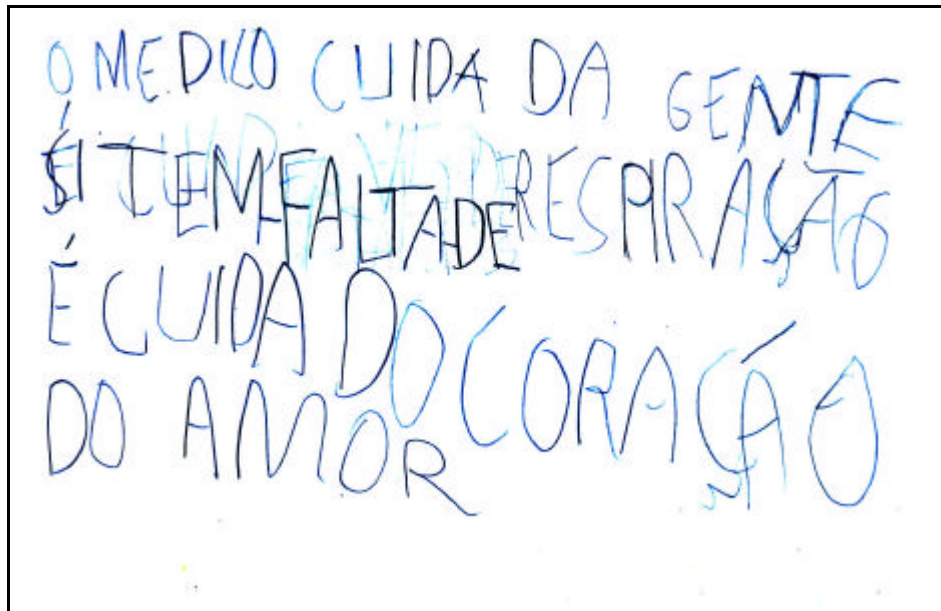 O MEDICO CUIDA DA GENTE
SI TEM FALTA DE RESPIRAÇÃO
É CUIDA DO CORAÇÁO
DO AMOR